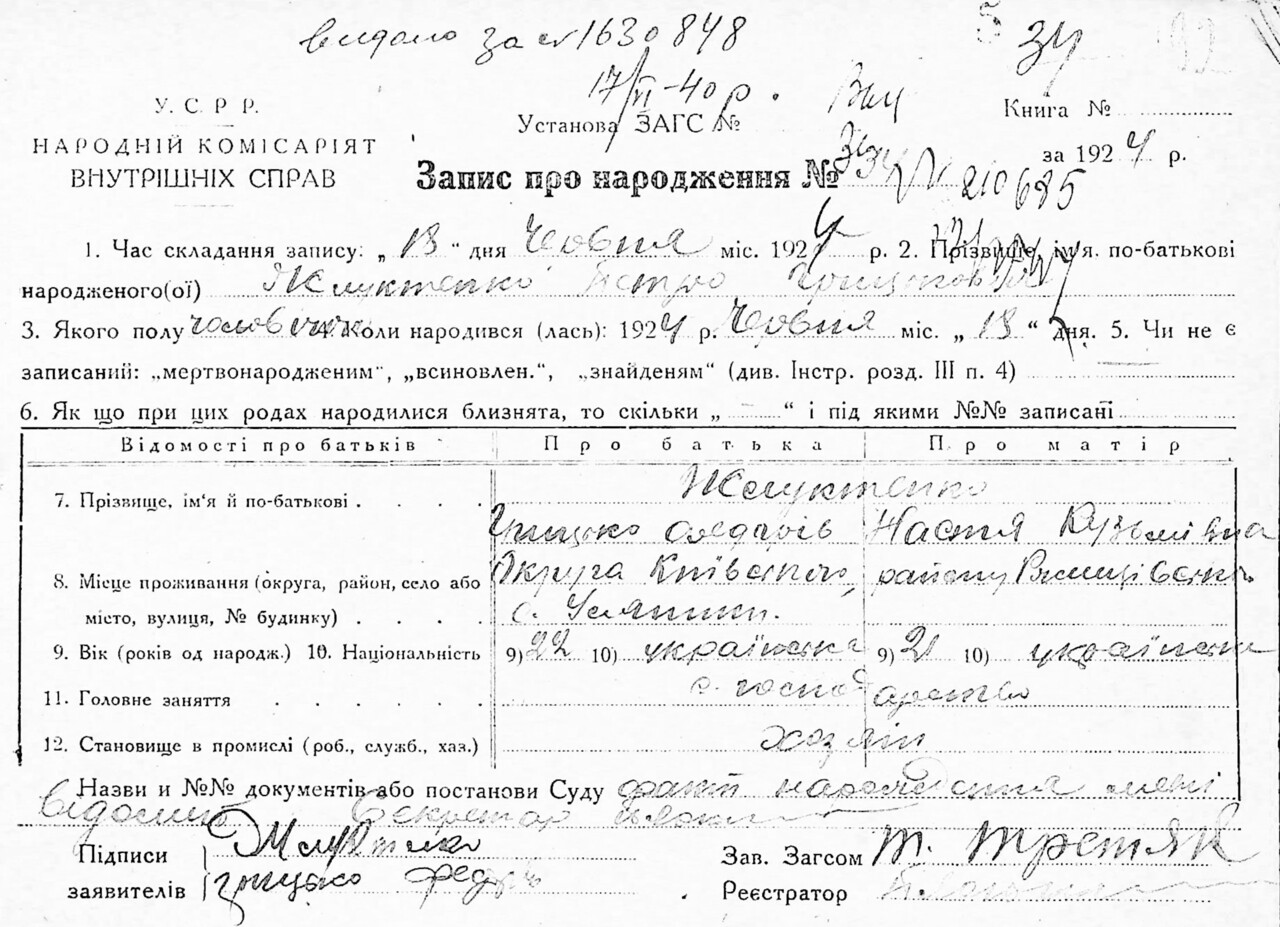 видано за № 1630848
5 34 92
17/VI-40 р.
У. С. Р. Р.
Установа ЗАГС №
Книга №
НАРОДНІЙ КОМІСАРІЯТ
за 1924 р.
ВНУТРІШНІХ СПРАВ
Запис про народження № 34
210685
1. Час складання запису: „ 13 “ дня Червня міс. 1924 р. 2. Прізвище, ім'я. по-батькові
народженого(ої) Жлуктенко Петро Грицькович
3. Якого полу чоловічик Коли народився (лась): 1924 р. Червня міс. „ 13 “ дня. 5. Чи не є
записаний: „мертвонародженим“, „всиновлен.“, „знайденям“ (див. Інстр. розд. III п. 4)
6. Як що при цих родах народилися близнята, то скільки „ — “ і під якими №№ записані
Відомості про батьків Про батька Про матір
7. Прізвище, ім'я й по-батькові . . . . Жлуктенко
Грицько Настя Кузьмівна
8. Місце проживання (округа, район, село або Округа Київської, району
місто, вулиця, № будинку) . . . . с.
9. Вік (років од народж.) 10. Національність 9) 22 10) українська 9) 21 10) українська
11. Головне заняття . . . . . . с. господарство
12. Становище в промислі (роб., служб., хаз.) хозяїн
Назви и №№ документів або постанови Суду факт народження мені
відомий Секретар
Підписи Жлуктенко
Зав. Загсом Т. Третяк
заявителів Грицько
Реєстратор